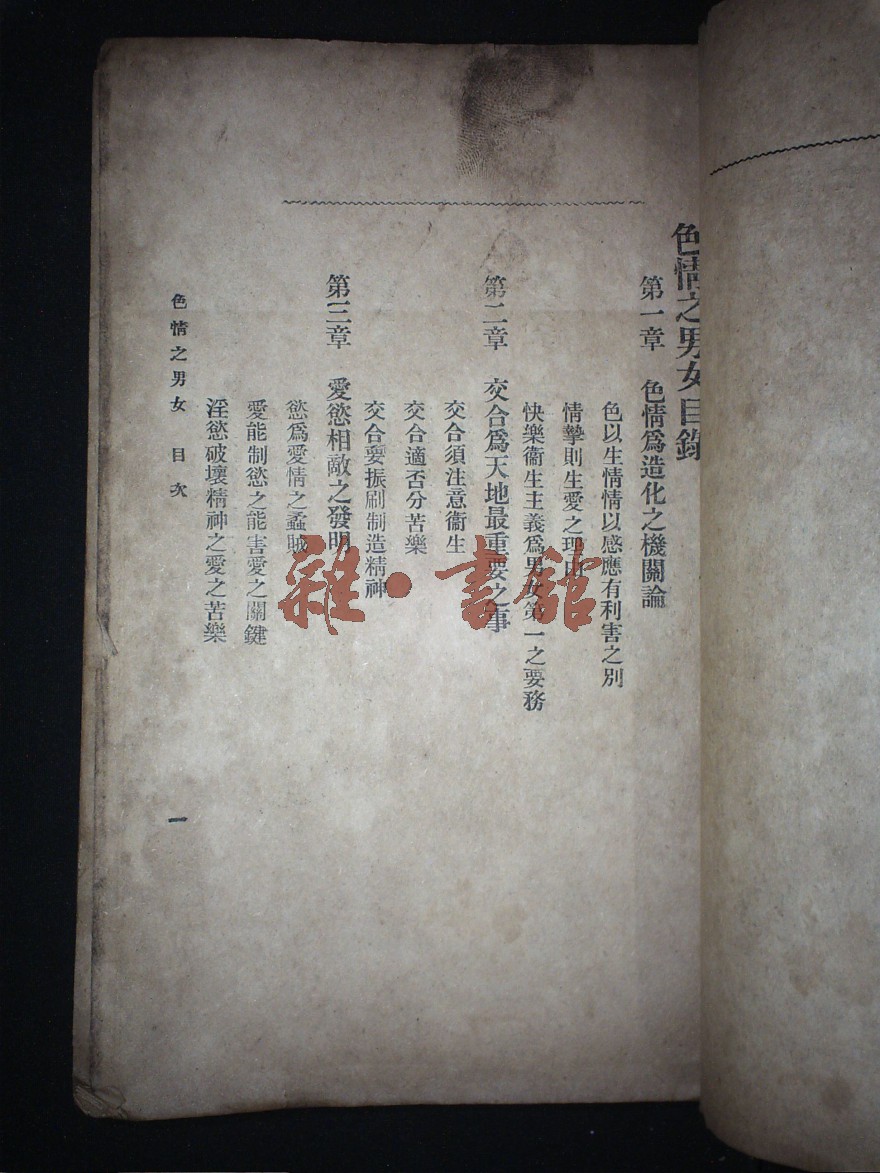 色情之男女目錄
第一章　色情爲造化之機關論
色以生情情以感應有利害之別
情摯則生愛之理由
快樂衞生主義爲男女第一之要務
第二章　交合爲天地最重要之事
交合須注意衞生
交合適否分苦樂
交合要振刷制造精神
第三章　愛慾相敵之發明
慾爲愛情之蟊賊
愛能制慾之能害愛之關鍵
淫慾破壞精神之愛之苦樂
色情之男女　目次
一
雜·書館